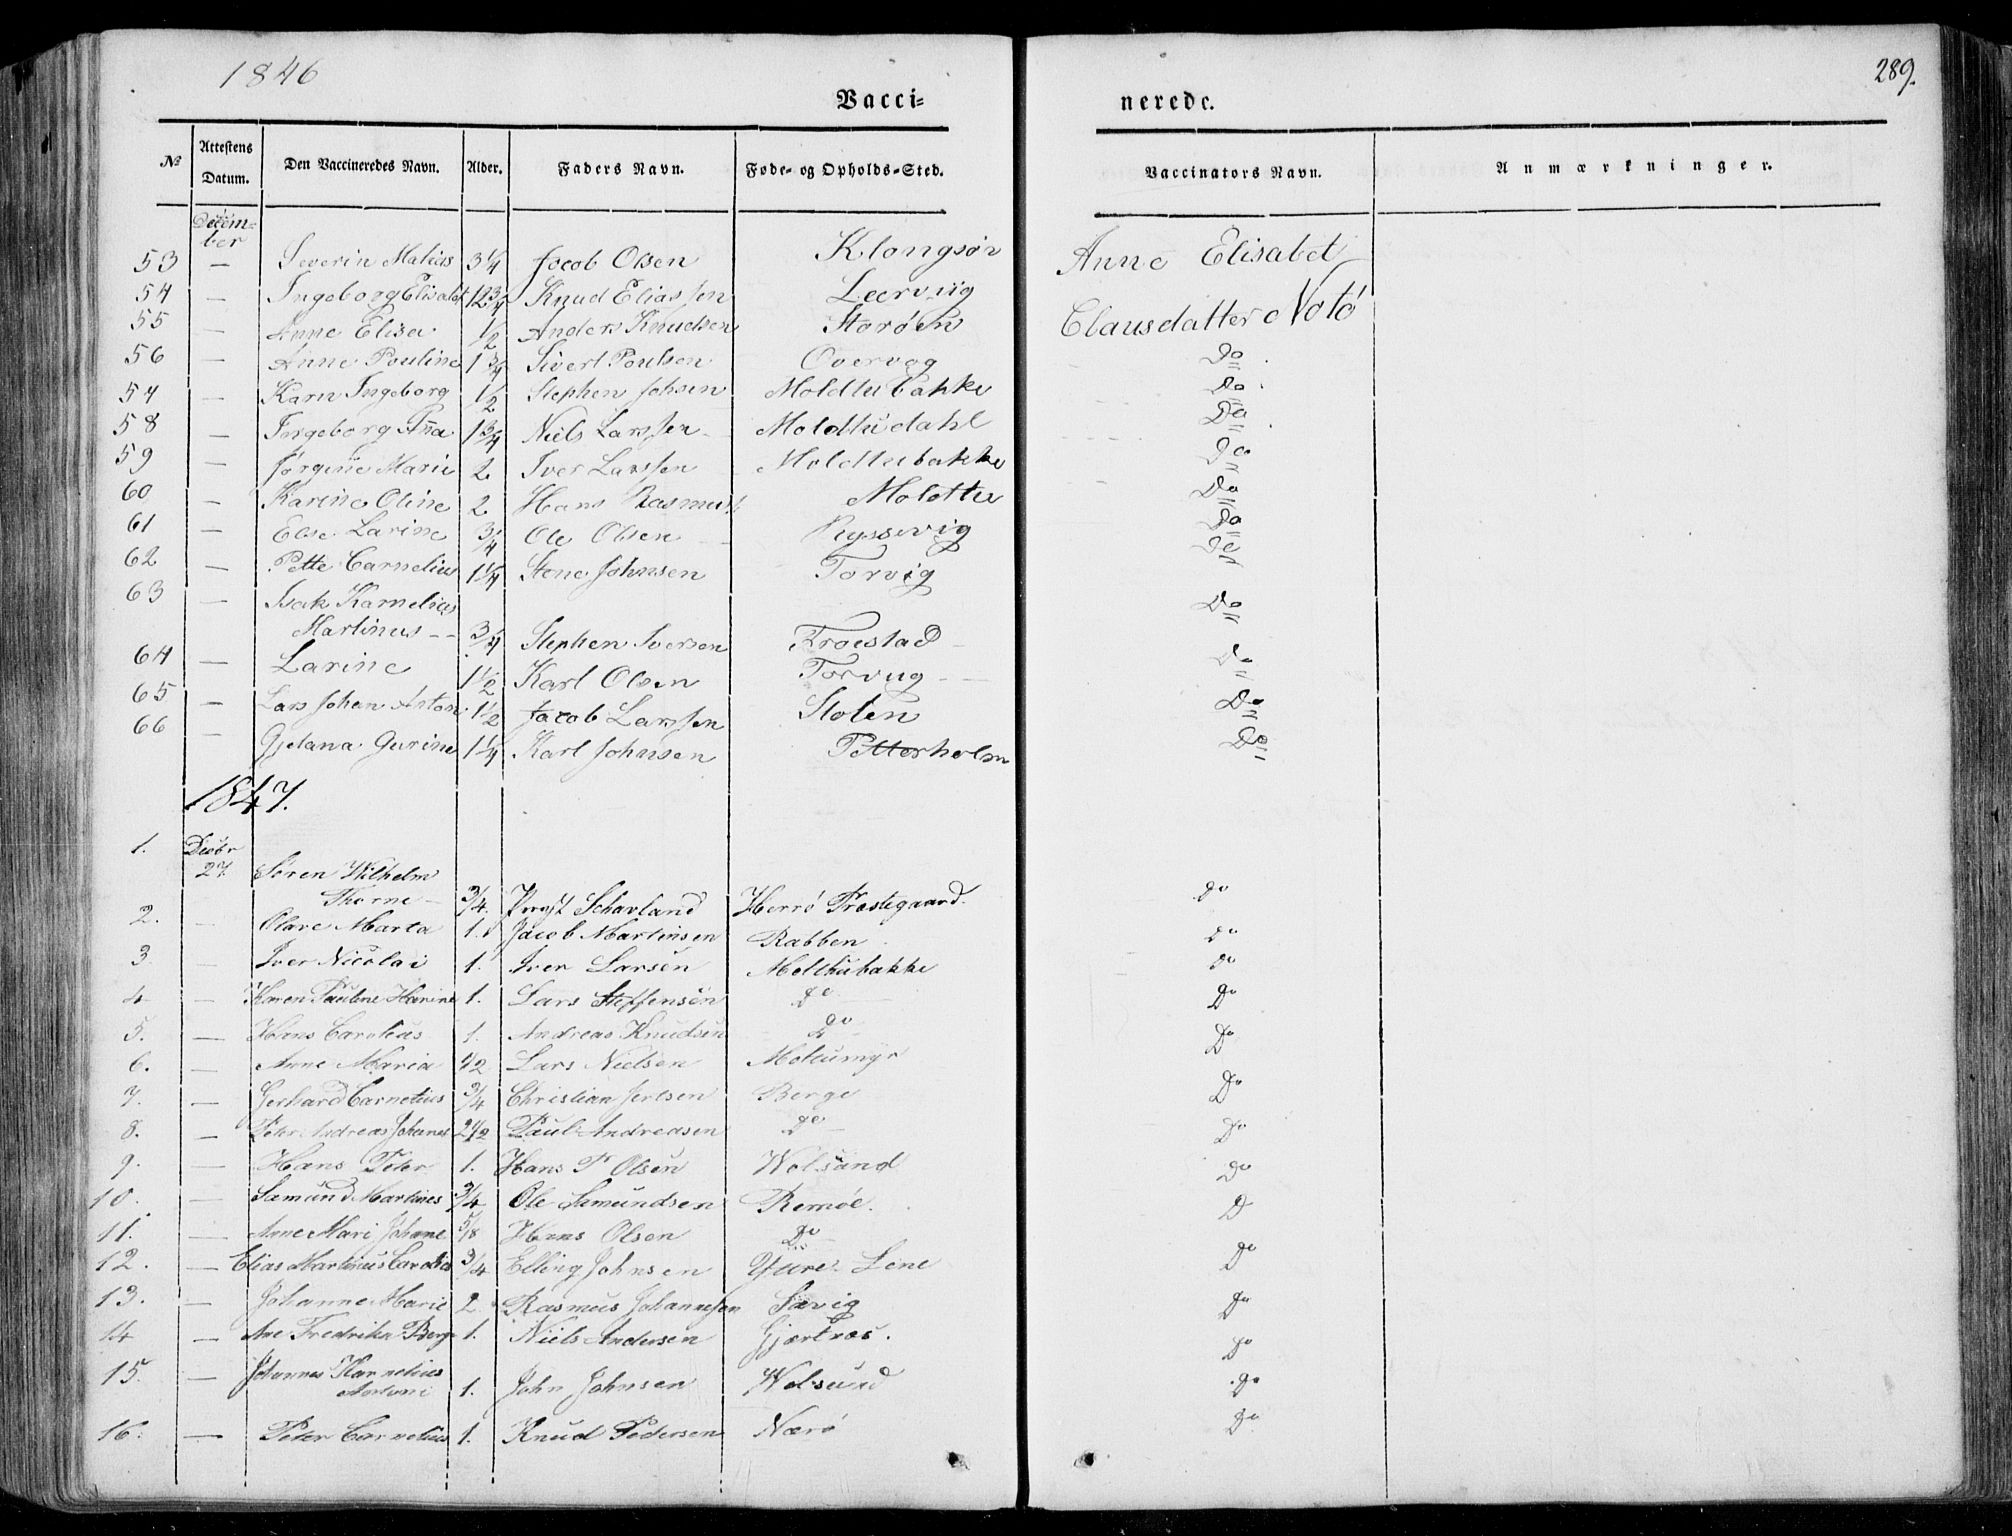 1846
289.
Vacci=
nerede.
№ Attestens Datum. Den Vaccineredes Navn. Alder. Faders Navn. Føde- og Opholds-Sted. Vaccinators Navn. Anmærkninger.
December
53 — Severin Matias 3 1/4 Jacob Olsen Klongsør Anne Elisabet
54 — Ingeborg Elisabet 12 3/4 Knud Eliassen Leervug Clausdatter Notø
55 — Anne Elisa 1/2 Anders Knudsen Storøen
56 — Anne Pouline 1 3/4 Sivert Poulsen Overvog Do
54 — Karn Ingeborg 1/2 Stephen Johsen Moldtubakke Do
58 — Ingeborg Aña 1 3/4 Niels Larssen Moldtudahl Do
59 — Jørgine Marie 2 Iver Larssen Moldtubakke Do
60 — Karine Oline 2 Hans Rasmus Moldtu Do
61 — Else Larine 3/4 Ole Olsen Do
62 — Pette Carnelius 1 1/4 Stene Johnsen Torvig Do
63 — Isak Karnelius
Martinus 3/4 Stephen Iversen Froestad Do
64 — Larine 1 1/2 Karl Olsen Torvug Do
65 — Lars Johan Anton 1 1/2 Jacob Larssen Stolen Do
66 — Gjetana Gurine 1 1/4 Karl Johnsen Petterholm Do
1847.
1. Decbr
27 Søren Wilhelm
Thorne 3/4. Provst Schavland Herrø Præstegaard. Do
2. — Olave Marta 1. Jacob Martinsen Rabben Do
3 — Iver Nicolai 1. Iver Larsen Moltubakke Do
4 — Karen Pauline Harine 1. Lars Steffensen Do Do
5. — Hans Carolius 1. Andreas Knudsen Do Do
6. — Anne Maria 1/2 Lars Nielsen Moltumyr Do
7. — Gerhard Carnelius 3/4 Christian Jertsen Berge Do
8. — Peter Andreas Johanes 2 1/2 Paul Andreasen Do Do
9. — Hans Peter 1. Hans P Olsen Wolsund Do
10. — Samund Martines 3/4 Ole Samundsen Remøe. D
11. — Anne Mari Johane 5/8 Hans Olsen Do Do
12. — Elias Martinus Carolius 3/4 Elling Johnsen Do
13. — Johanne Marie 2. Rasmus Johannesen Sævig Do
14 — Ane Fredrika Berge 1. Niels Andersen Gjertnes. Do
15. — Johannes Karnelius
Antoni 1. John Johnsen Wolsund Do
16. — Peter Carnelius 1. Knud Pedersen Nærø Do